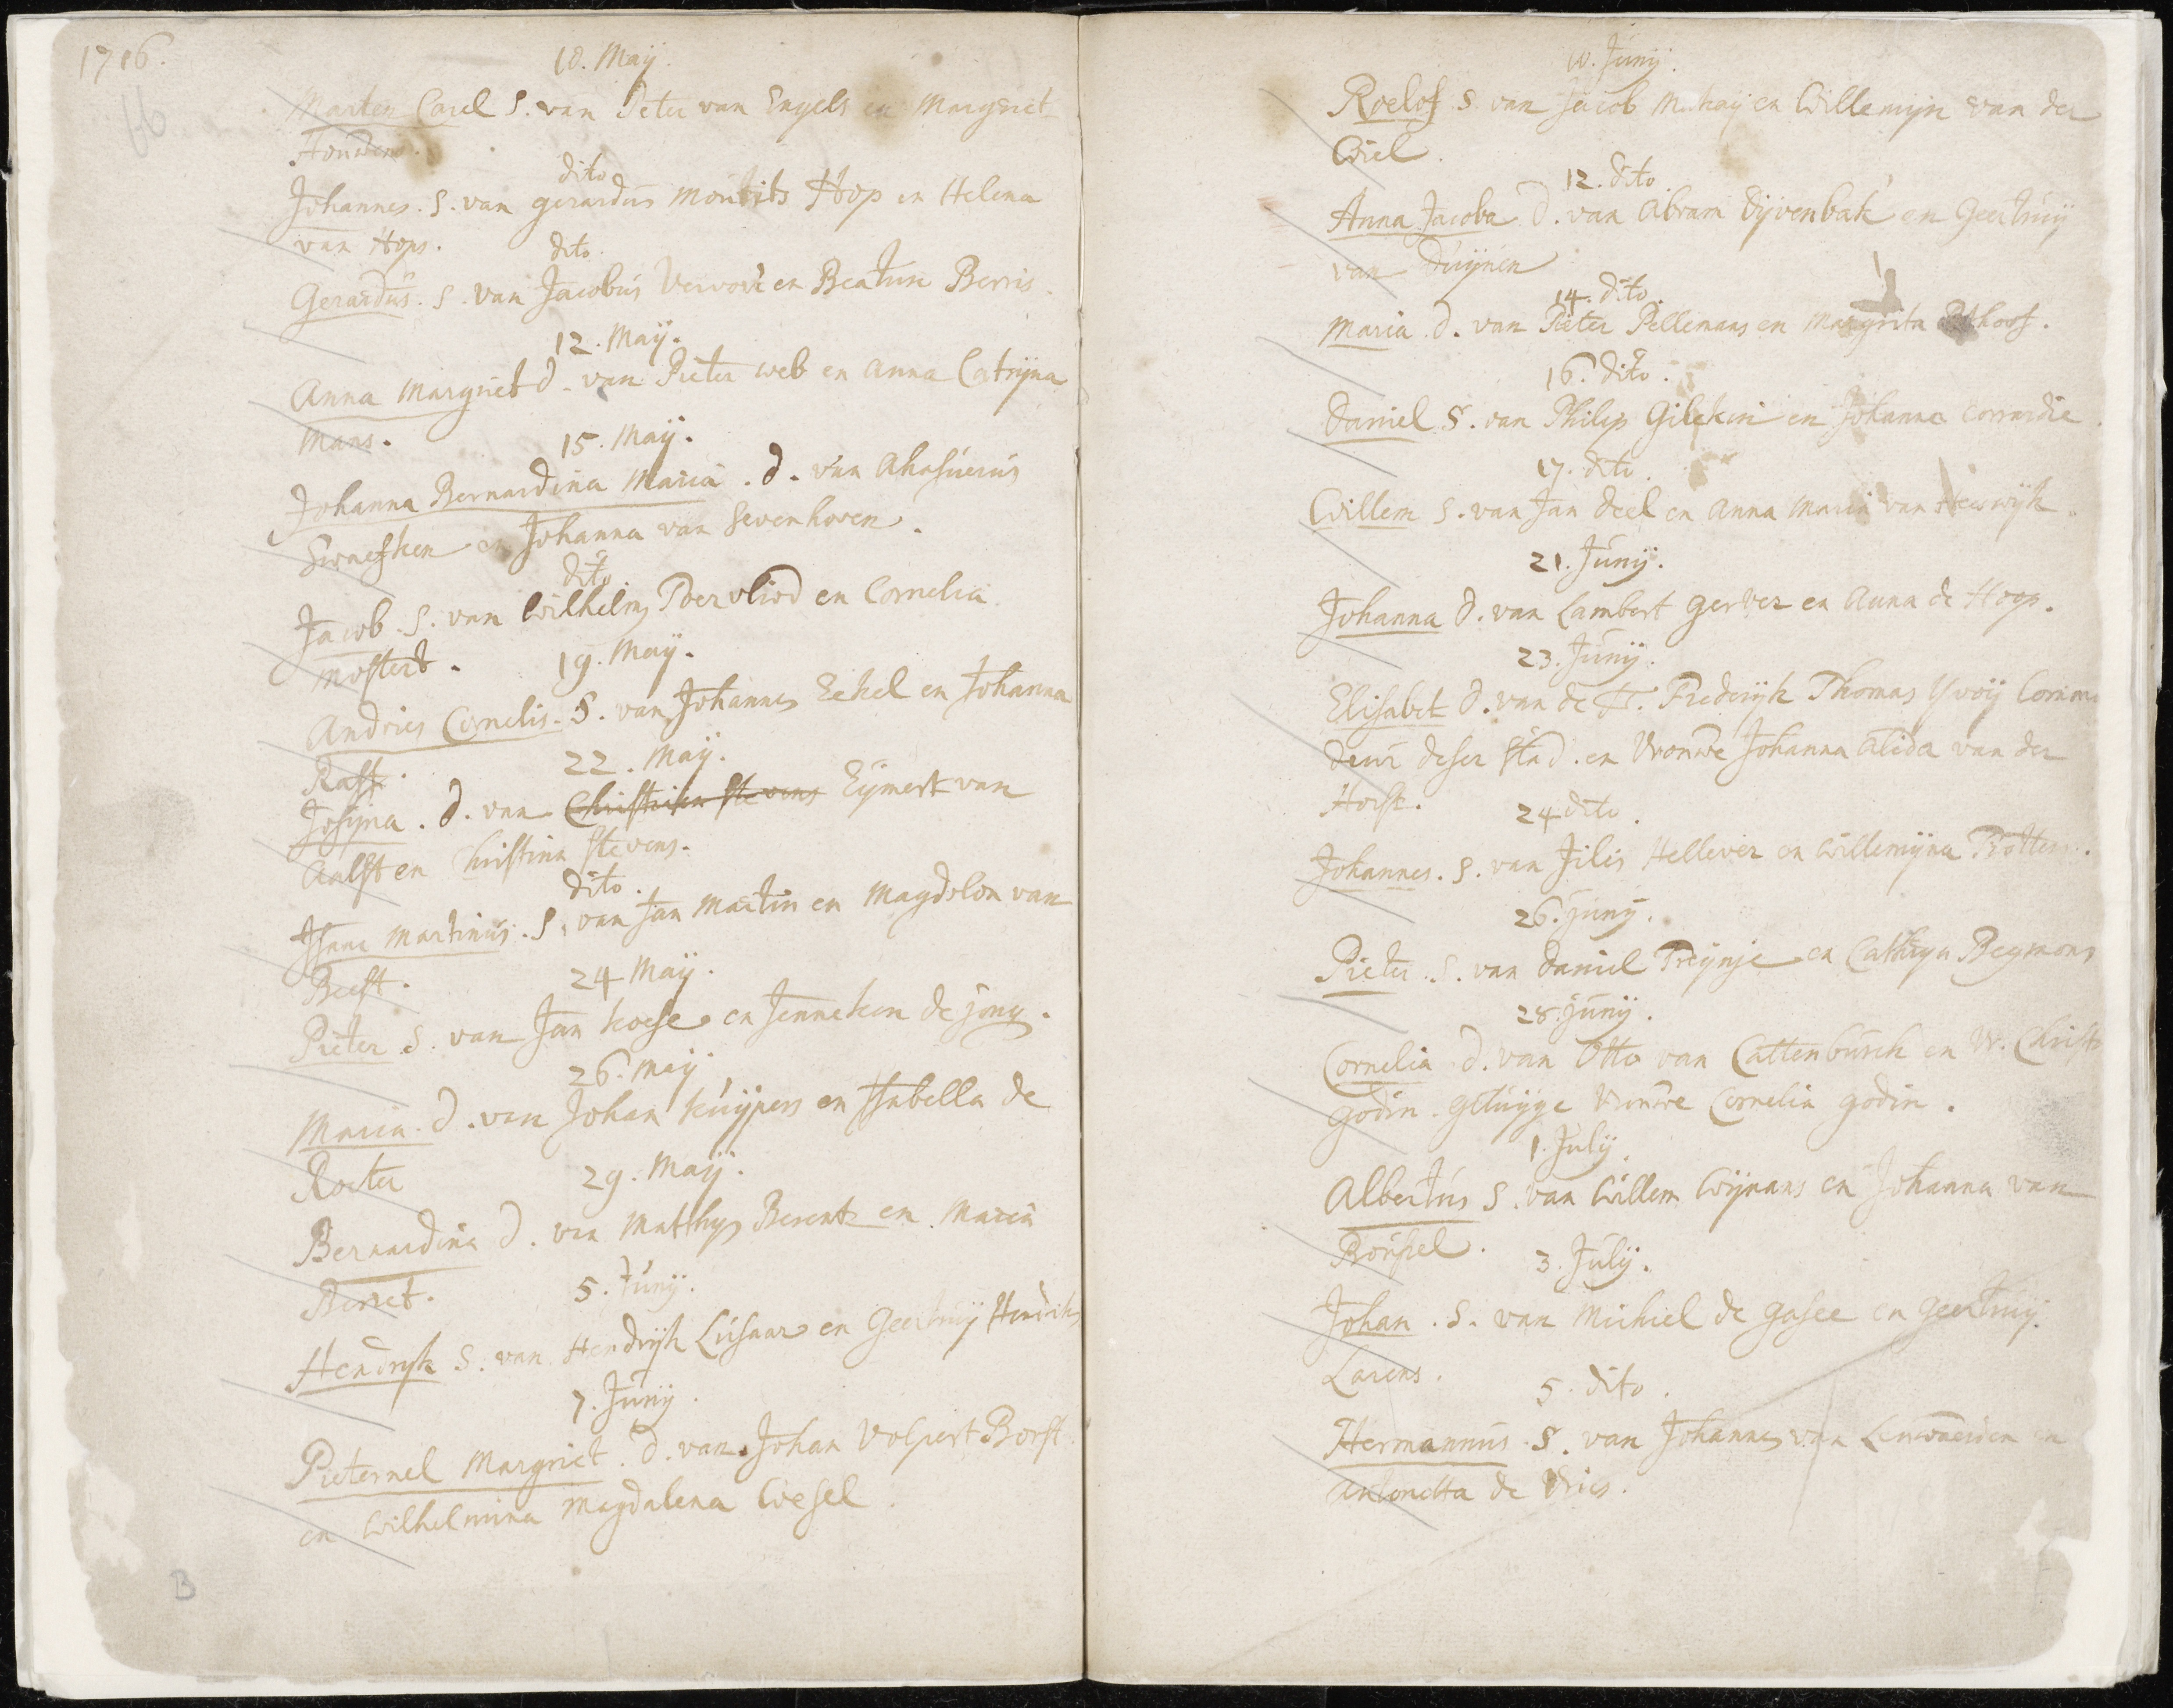 1716.
66
10. Maÿ.
Marten Carel S. van Peter van Engels en Margriet
Houwens.
dito
Johannes. S. van gerardus Mourits Hop en Helena
van Hops.
dito.
Gerardus. S. van Jacobus Vervort en Beatrix Berris.
12. Maÿ.
Anna Margriet d. van Pieter web en Anna Catrÿna
Mans.
15. Maÿ.
Johanna Bernardina Maria. d. van Ahasuerus
en Johanna van Sevenhoven.
dito
Jacob. S. van Wilhelm Poervliod en Cornelia
Mostert.
19. Maÿ.
Andries Cornelis. S. van Johannes Eckel en Johanna
Rast.
22. Maÿ.
Josÿna. d. van Christina Stevens Eÿmert van
Aalst en Christina Stevens.
dito.
Isaac Martinus. S. van Jan Martin en Magdelon van
Beest.
24 Maÿ.
Pieter S. van Jan koese en Jenneken de jong.
26. Maÿ
Maria. d. van Johan kuÿpers en Isabella de
Roeter
29. Maÿ.
Bernardina d. van Matthÿs Berent en Maria
Berret.
5. Junÿ.
Hendryk S. van Hendrÿk Lusaar en Geertruÿ Hendriks
7. Junÿ.
Pieternel Margriet. d. van Johan Volpert Borst
en Wilhelmina Magdalena Wesel.
B
10. Junÿ.
Roelof S. van Jacob Mckaÿ en Willemÿn van der
Wiel.
12. dito.
Anna Jacoba D. van Abram Dÿvenbak en Geertruÿ
van Duÿnen
14. dito.
Maria. d. van Pieter Pellemans en Margrita
16. dito.
Daniel S. van Philip Gilekin en Johanna Corrardie.
17. dito.
Willem S. van Jan deel en Anna Maria van Heeswÿk.
21. Junÿ.
Johanna D. van Lambert Gerver en Anna de Hoop.
23. Junÿ.
Elisabet d. van de H. Frederÿk Thomas Yvoÿ Comman
deur deser stad. en Vrouwe Johanna Alida van der
Horst.
24 dito.
Johannes. S. van Jilis Hellever en Willemÿna Protters.
26. junÿ.
Pieter. S. van Daniel Preÿnje en Cathrÿn Begmons
28. junÿ.
Cornelia d. van Otto van Cattenburch en W. Christ
Godin. getuÿge Vrouwe Cornelia Godin.
1. Julÿ.
Albertus S. van Willem Wÿnans en Johanna van
Bruissel.
3. Julÿ.
Johan. S. van Michiel de Gasee en Geertruÿ
Larens.
5. dito.
Hermannus S. van Johannes van Leeuwaerden en
Antonetta de Vries.